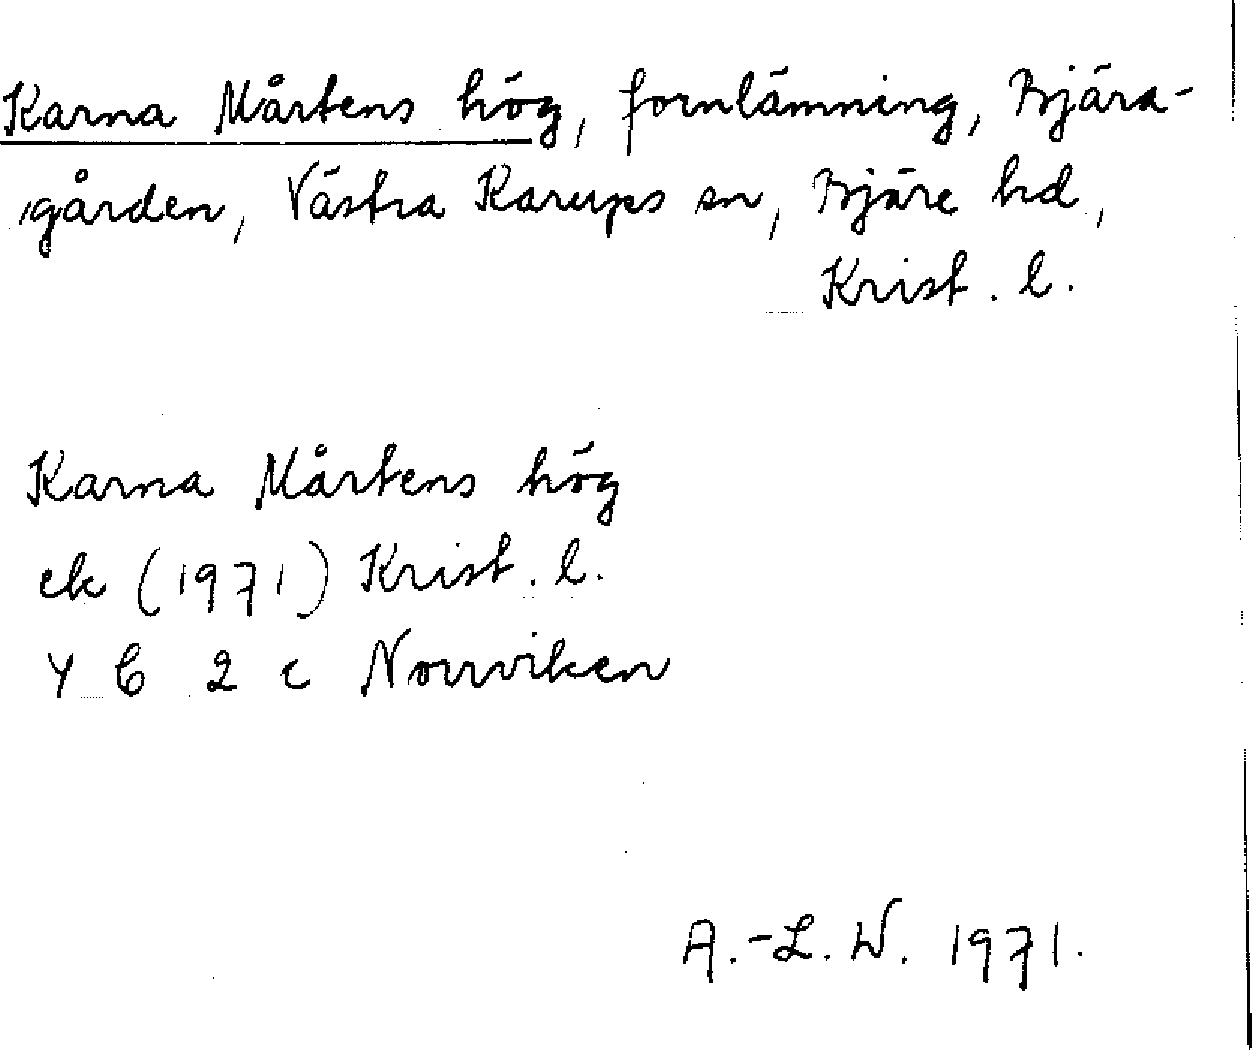 Karna Mårtens hög, fornlämning, Bjära-
gården, Västra Karups sn, Bjäre hd,
Krist. l.
Karna Mårtens hög
ek (1971) Krist. l.
4 C 2 c Norrviken
A.-L. W. 1971.